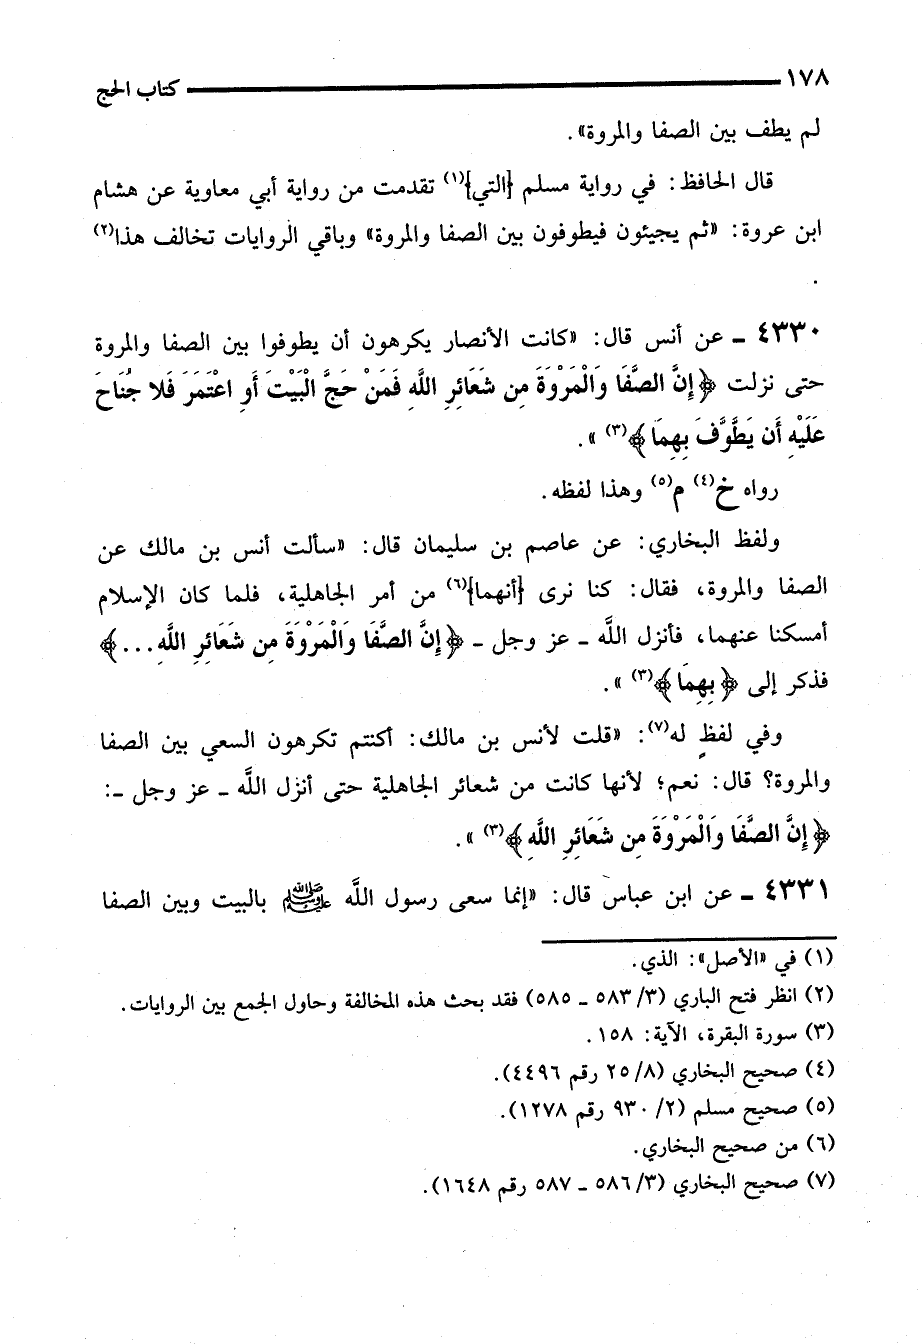 ١٧٨ كتاب الحج
لم يطف بين الصفا والمروة».
قال الحافظ: في رواية مسلم {التي}(١) تقدمت من رواية أبي معاوية عن هشام
ابن عروة: «ثم يجيئون فيطوفون بين الصفا والمروة» وباقي الروايات تخالف هذا(٢)
.
٤٣٣٠ ـ عن أنس قال: «كانت الأنصار يكرهون أن يطوفوا بين الصفا والمروة
حتى نزلت ﴿إِنَّ الصَّفَا وَالْمَرْوَةَ مِن شَعَائِرِ اللَّهِ فَمَنْ حَجَّ الْبَيْتَ أَوِ اعْتَمَرَ فَلا جُنَاحَ
عَلَيْهِ أَن يَطَّوَّفَ بِهِمَا﴾(٣) ».
رواه خ(٤) م(٥) وهذا لفظه.
ولفظ البخاري: عن عاصم بن سليمان قال: «سألت أنس بن مالك عن
الصفا والمروة، فقال: كنا نرى {أنهما}(٦) من أمر الجاهلية، فلما كان الإسلام
أمسكنا عنهما، فأنزل اللَّه ـ عز وجل ـ ﴿إِنَّ الصَّفَا وَالْمَرْوَةَ مِن شَعَائِرِ اللَّهِ...﴾
فذكر إلى ﴿بِهِمَا﴾(٣) ».
وفي لفظٍ له(٧): «قلت لأنس بن مالك: أكنتم تكرهون السعي بين الصفا
والمروة؟ قال: نعم؛ لأنها كانت من شعائر الجاهلية حتى أنزل اللَّه ـ عز وجل ـ:
﴿إِنَّ الصَّفَا وَالْمَرْوَةَ مِن شَعَائِرِ اللَّهِ﴾(٣) ».
٤٣٣١ ـ عن ابن عباس قال: «إنما سعى رسول اللَّه ﷺ بالبيت وبين الصفا
(١) في «الأصل»: الذي.
(٢) انظر فتح الباري (٣/ ٥٨٣ ـ ٥٨٥) فقد بحث هذه المخالفة وحاول الجمع بين الروايات.
(٣) سورة البقرة، الآية: ١٥٨.
(٤) صحيح البخاري (٨/ ٢٥ رقم ٤٤٩٦).
(٥) صحيح مسلم (٢/ ٩٣٠ رقم ١٢٧٨).
(٦) من صحيح البخاري.
(٧) صحيح البخاري (٣/ ٥٨٦ ـ ٥٨٧ رقم ١٦٤٨).